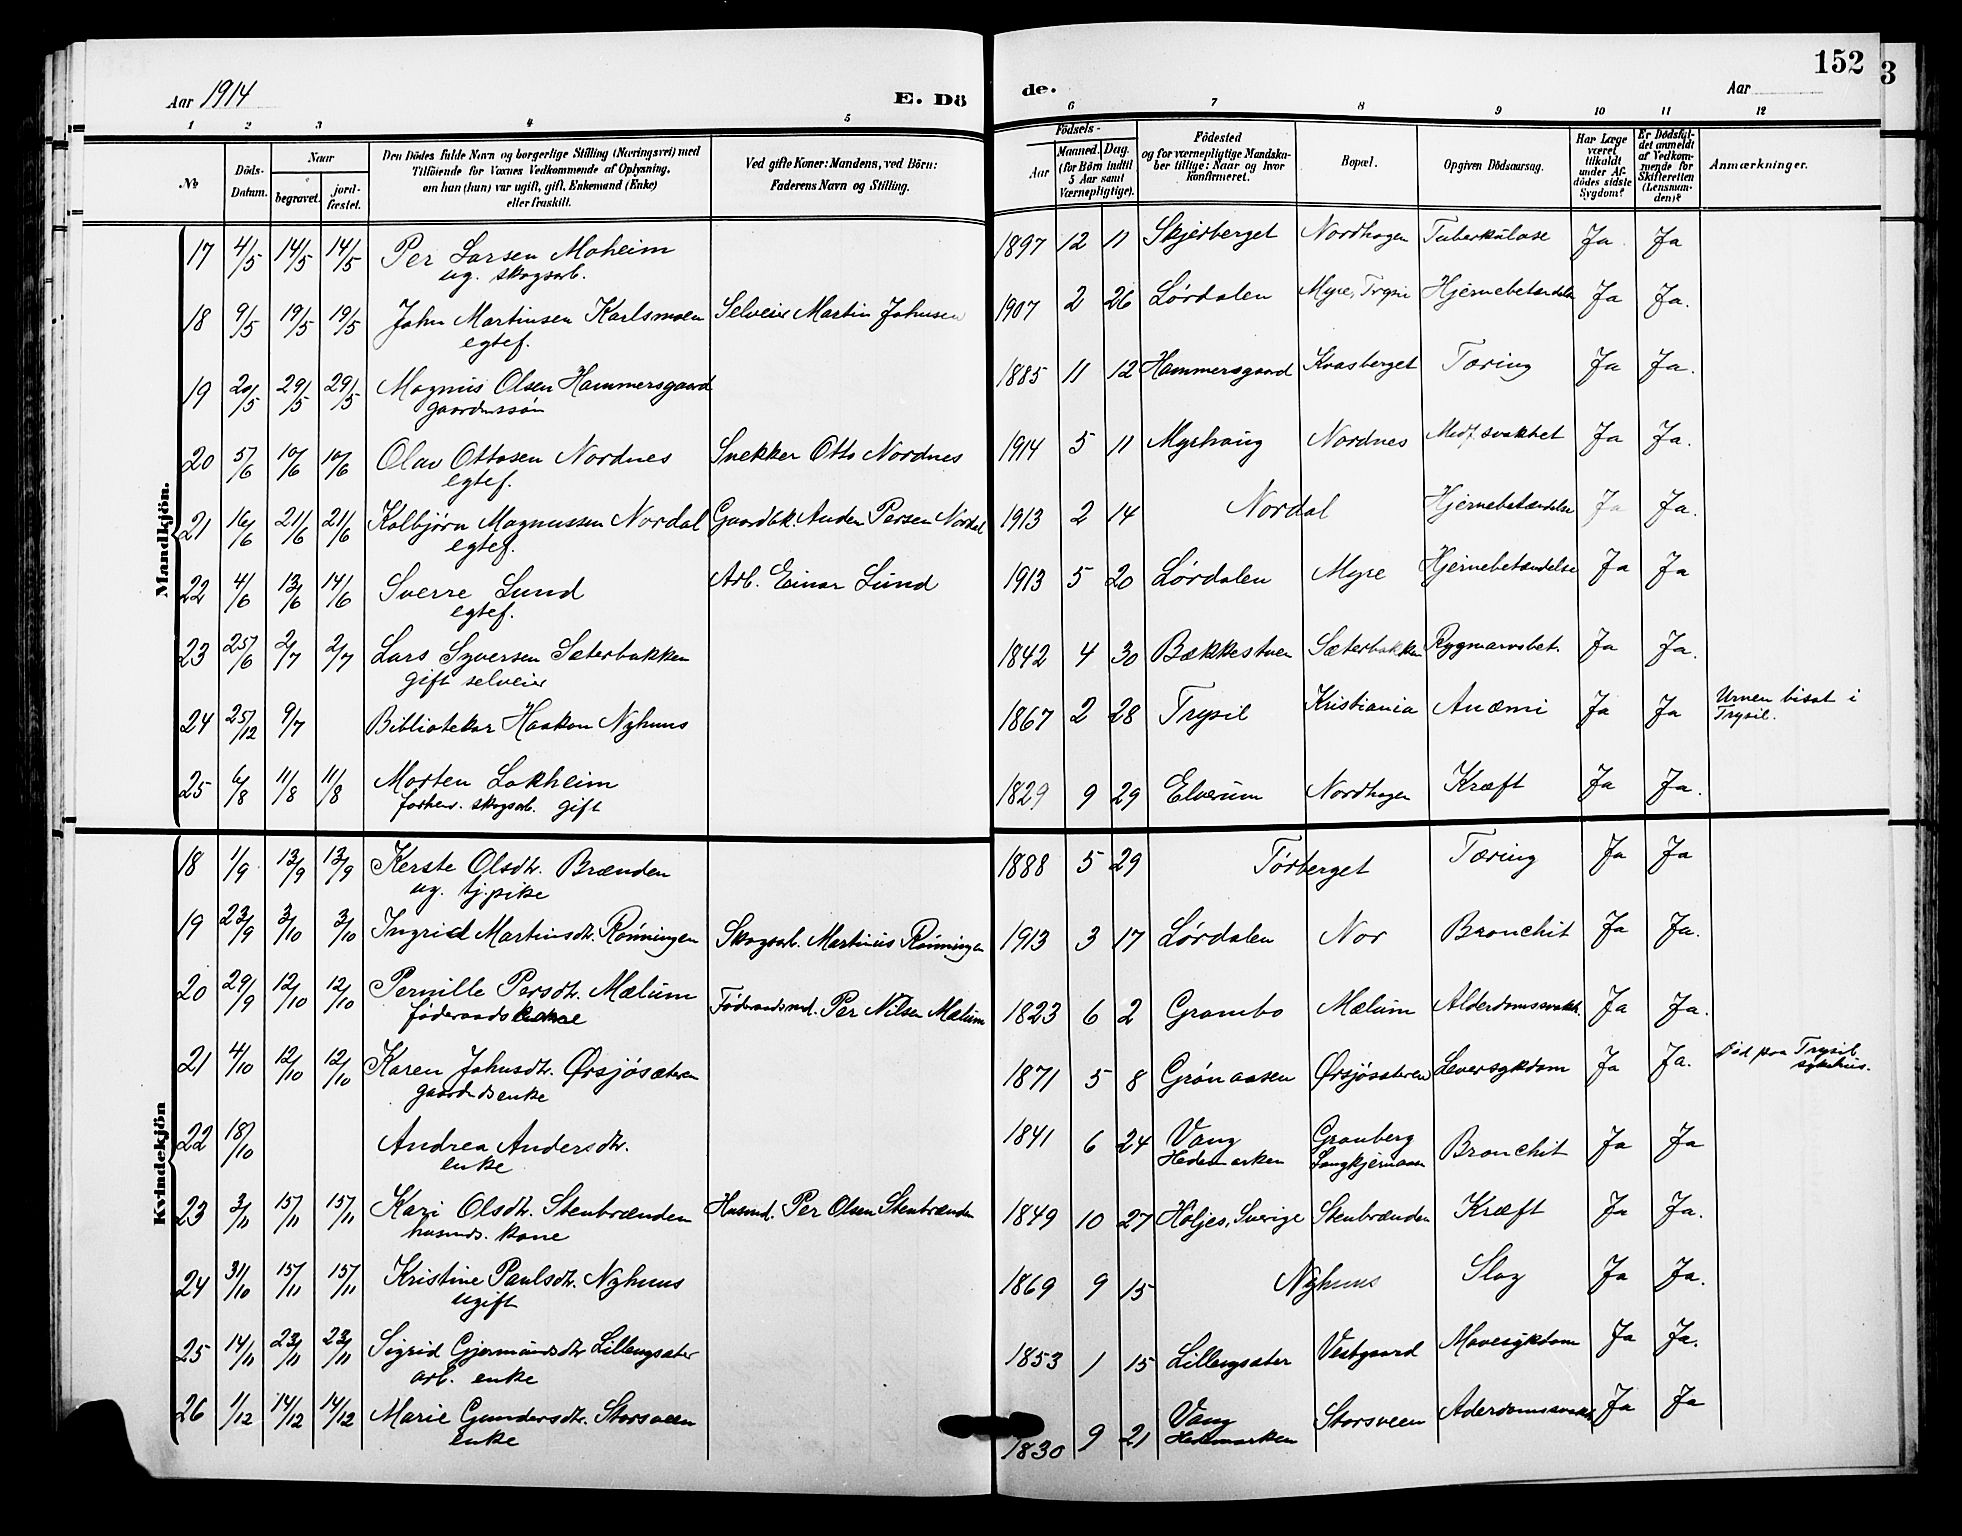 152
3
Aar 1914
E. Dö
de.
Aar
1 2 3 4 5
6 7 8 9 10 11 12
No
Döds-
Datum.
Naar
begravet.
jord-
fæstet.
Den Dödes fulde Navn og borgerlige Stilling (Næringsvei) med
Tilföiende for Voxnes Vedkommende af Oplysning,
om han (hun) var ugift, gift, Enkemand (Enke)
eller fraskilt.
Ved gifte Koner: Mandens, ved Börn:
Faderens Navn og Stilling.
Födsels-
Aar
Maaned. Dag.
(for Börn indtil
5 Aar samt
Værnepligtige).
Födested
og for værnepligtige Mandska-
ber tillige: Naar og hvor
konfirmeret.
Bopæl.
Opgiven Dödsaarsag.
Har Læge
været
tilkaldt
under Af-
dödes sidste
Sygdom?
Er Dödsfal-
det anmeldt
af Vedkom-
mende for
Skifteretten
(Lensman-
den)?
Anmærkninger.
Mandkjön.
17 4/5 14/5 14/5 Per Larsen Moheim 1897 12 11 Skjerberget Nordhagen Tuberkulose Ja Ja
ug. skogsarb.
18 9/5 19/5 19/5 John Martinsen Karlsmoen Selveier Martin Johnsen 1907 2 26 Lørdalen Myre, Trysil Hjernebetændelse Ja Ja.
egtef.
19 20/5 29/5 29/5 Magnus Olsen Hammersgaard 1885 11 12 Hammersgaard Kvasberget Tæring Ja Ja.
gaardmssøn
20 5/6 10/6 10/6 Olav Ottosen Nordnes Snekker Otto Nordnes 1914 5 11 Myrhaug Nordnes Medf. svakhet Ja Ja.
egtef.
21 16/6 21/6 21/6 Kolbjørn Magnussen Nordal Gaardbk. Anden Persen Nordal 1913 2 14 Nordal Hjernebetændelse Ja Ja.
egtef.
22 4/6 13/6 14/6 Sverre Lund Arb. Einar Lund 1913 5 20 Lørdalen Myre Hjernebetændelse Ja Ja
egtef.
23 25/6 2/7 2/7 Lars Syversen Sæterbakken 1842 4 30 Bækkestuen Sæterbakken Rygmarvsbet. Ja Ja.
gift selveier
24 25/12 9/7 Bibliotekar Haakon Nyhuus 1867 2 28 Trysil Kristiania Anæmi Ja Ja Urnen bisat i
Trysil.
25 6/8 11/8 11/8 Morten Lokheim 1829 9 29 Elverum Nordhagen Kræft Ja Ja.
forhenv. skogsarb. gift
Kvindekjön
18 1/9 13/9 13/9 Kerste Olsdtr. Brænden 1888 5 29 Tørberget Tæring Ja Ja
ug. tj.pike
19 23/9 3/10 3/10 Ingrid Martinsdtr. Rønningen Skogsarb. Martinus Rønningen 1913 3 17 Lørdalen Nor Bronchit Ja Ja.
20 29/9 12/10 12/10 Pernille Persdtr. Mælum Føderaadsmd. Per Nilsen Mælum 1823 6 2 Grambo Mælum Alderdomssvakh. Ja Ja.
føderaads
21 4/10 12/10 12/10 Karen Johnsdtr. Ørsjøsæteren 1871 5 8 Grønaasen Ørsjøsæteren Leversykdom Ja Ja. Død paa Trysil
sykehus.
gaardmdsenke
22 18/10 Andrea Andersdtr. 1841 6 24 Vang Granberg Bronchit Ja Ja
enke Hedemarken Langkjernaasen
23 3/11 15/11 15/11 Kari Olsdtr. Stenbrænden Husmd. Per Olsen Stenbrænden 1849 10 27 Höljes, Sverige Stenbrænden Kræft Ja Ja.
husmds. kone
24 31/10 15/11 15/11 Kristine Paulsdtr. Nyhuus 1869 9 15 Nyhuus Slag Ja Ja.
ugift
25 14/11 23/11 23/11 Sigrid Gjermundsdtr. Lillengsæter 1853 1 15 Lillengsæter Vestgaard Mavesykdom Ja Ja.
arb. enke
26 1/12 14/12 14/12 Marie Gundersdtr. Storsveen 1830 9 21 Vang Storsveen Aderdomssvakh. Ja Ja
enke Hedmarken